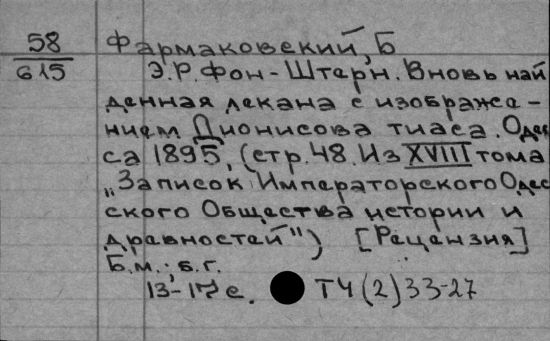 58
615
Фармаковский, Б
Э.Р. Фон-Штерн. Вновь най
денная лекана с изображе-
нием Дионисова тиаса. Одес
са 1895, (стр. 48. Из XVIII тома
„Записок Императорского Одес
ского Общества истории и
древностей") [Рецензия]
Б.м.; б.г.
13-17 с. ТЧ(2)33-27